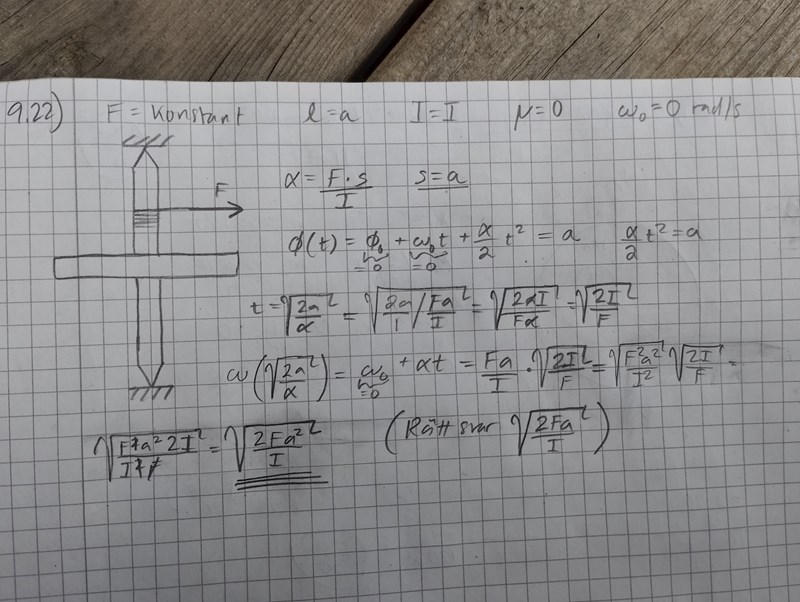 9.22) F = Konstant l = a I = I μ = 0 ω₀ = 0 rad/s
F
α = F·s/I s = a
ϕ(t) = ϕ₀ + ω₀t + α/2 t² = a α/2 t² = a
=0 =0
t = √(2a/α) = √(2a/1 / Fa/I) = √(2aI/Fa) = √(2I/F)
ω(√(2a/α)) = ω₀ + αt = Fa/I · √(2I/F) = √(F²a²/I²) √(2I/F) =
=0
√(F²a²2I/I²F) = √(2Fa²/I) (Rätt svar √(2Fa/I))